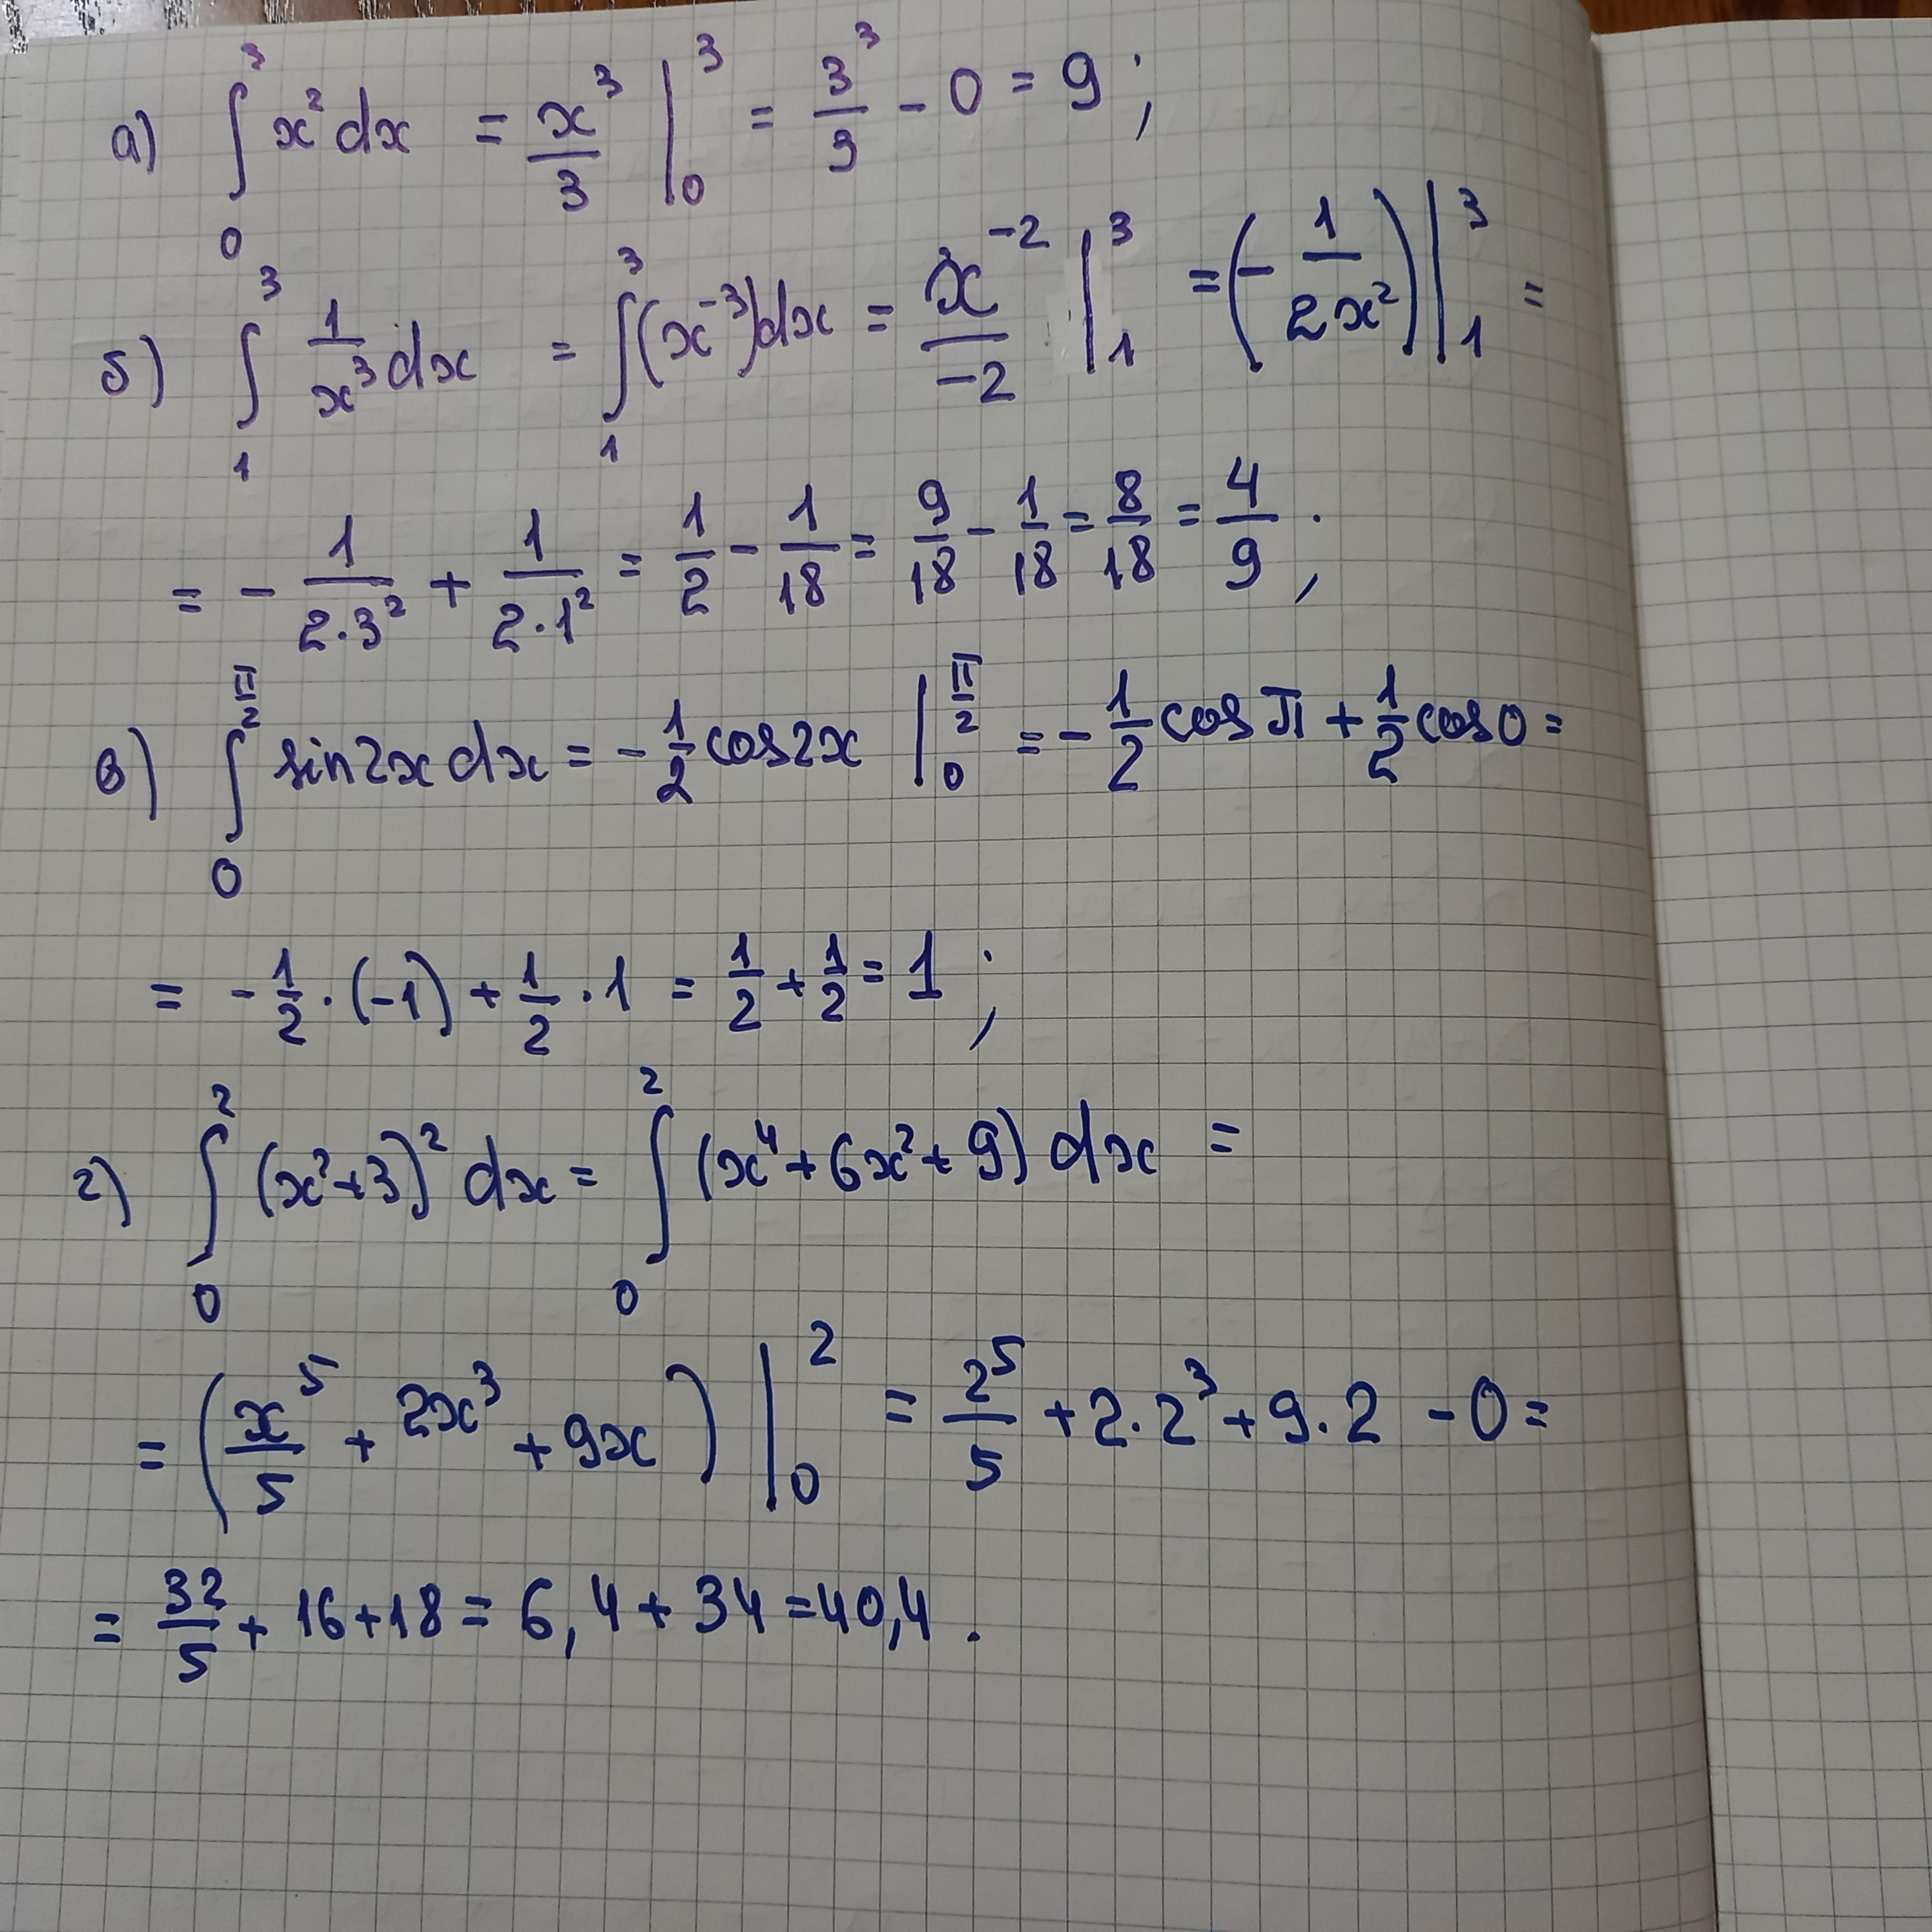 а) ∫₀³ x² dx = x³/3 |₀³ = 3³/3 - 0 = 9 ;
б) ∫₁³ 1/x³ dx = ∫₁³ (x⁻³)dx = x⁻²/-2 |₁³ = (- 1/2x²) |₁³ =
= - 1/2·3² + 1/2·1² = 1/2 - 1/18 = 9/18 - 1/18 = 8/18 = 4/9 ;
в) ∫₀^(π/2) sin2x dx = - 1/2 cos2x |₀^(π/2) = - 1/2 cos π + 1/2 cos0 =
= - 1/2 · (-1) + 1/2 · 1 = 1/2 + 1/2 = 1 ;
г) ∫₀² (x²+3)² dx = ∫₀² (x⁴ + 6x² + 9) dx =
= (x⁵/5 + 2x³ + 9x) |₀² = 2⁵/5 + 2·2³ + 9·2 - 0 =
= 32/5 + 16+18 = 6,4 + 34 = 40,4 .